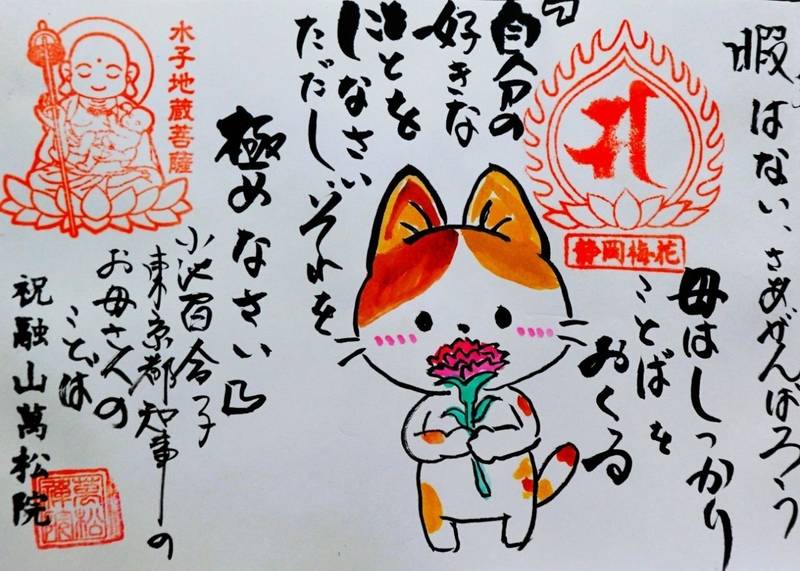 暇はない、さあがんばろう
母はしっかり
ことばを
おくる
静岡梅花
「自分の
好きな
ことを
しなさい
ただし、それを
極めなさい」
小池百合子
東京都知事の
お母さんの
ことば
祝融山萬松院
水子地蔵菩薩
萬松
禪院